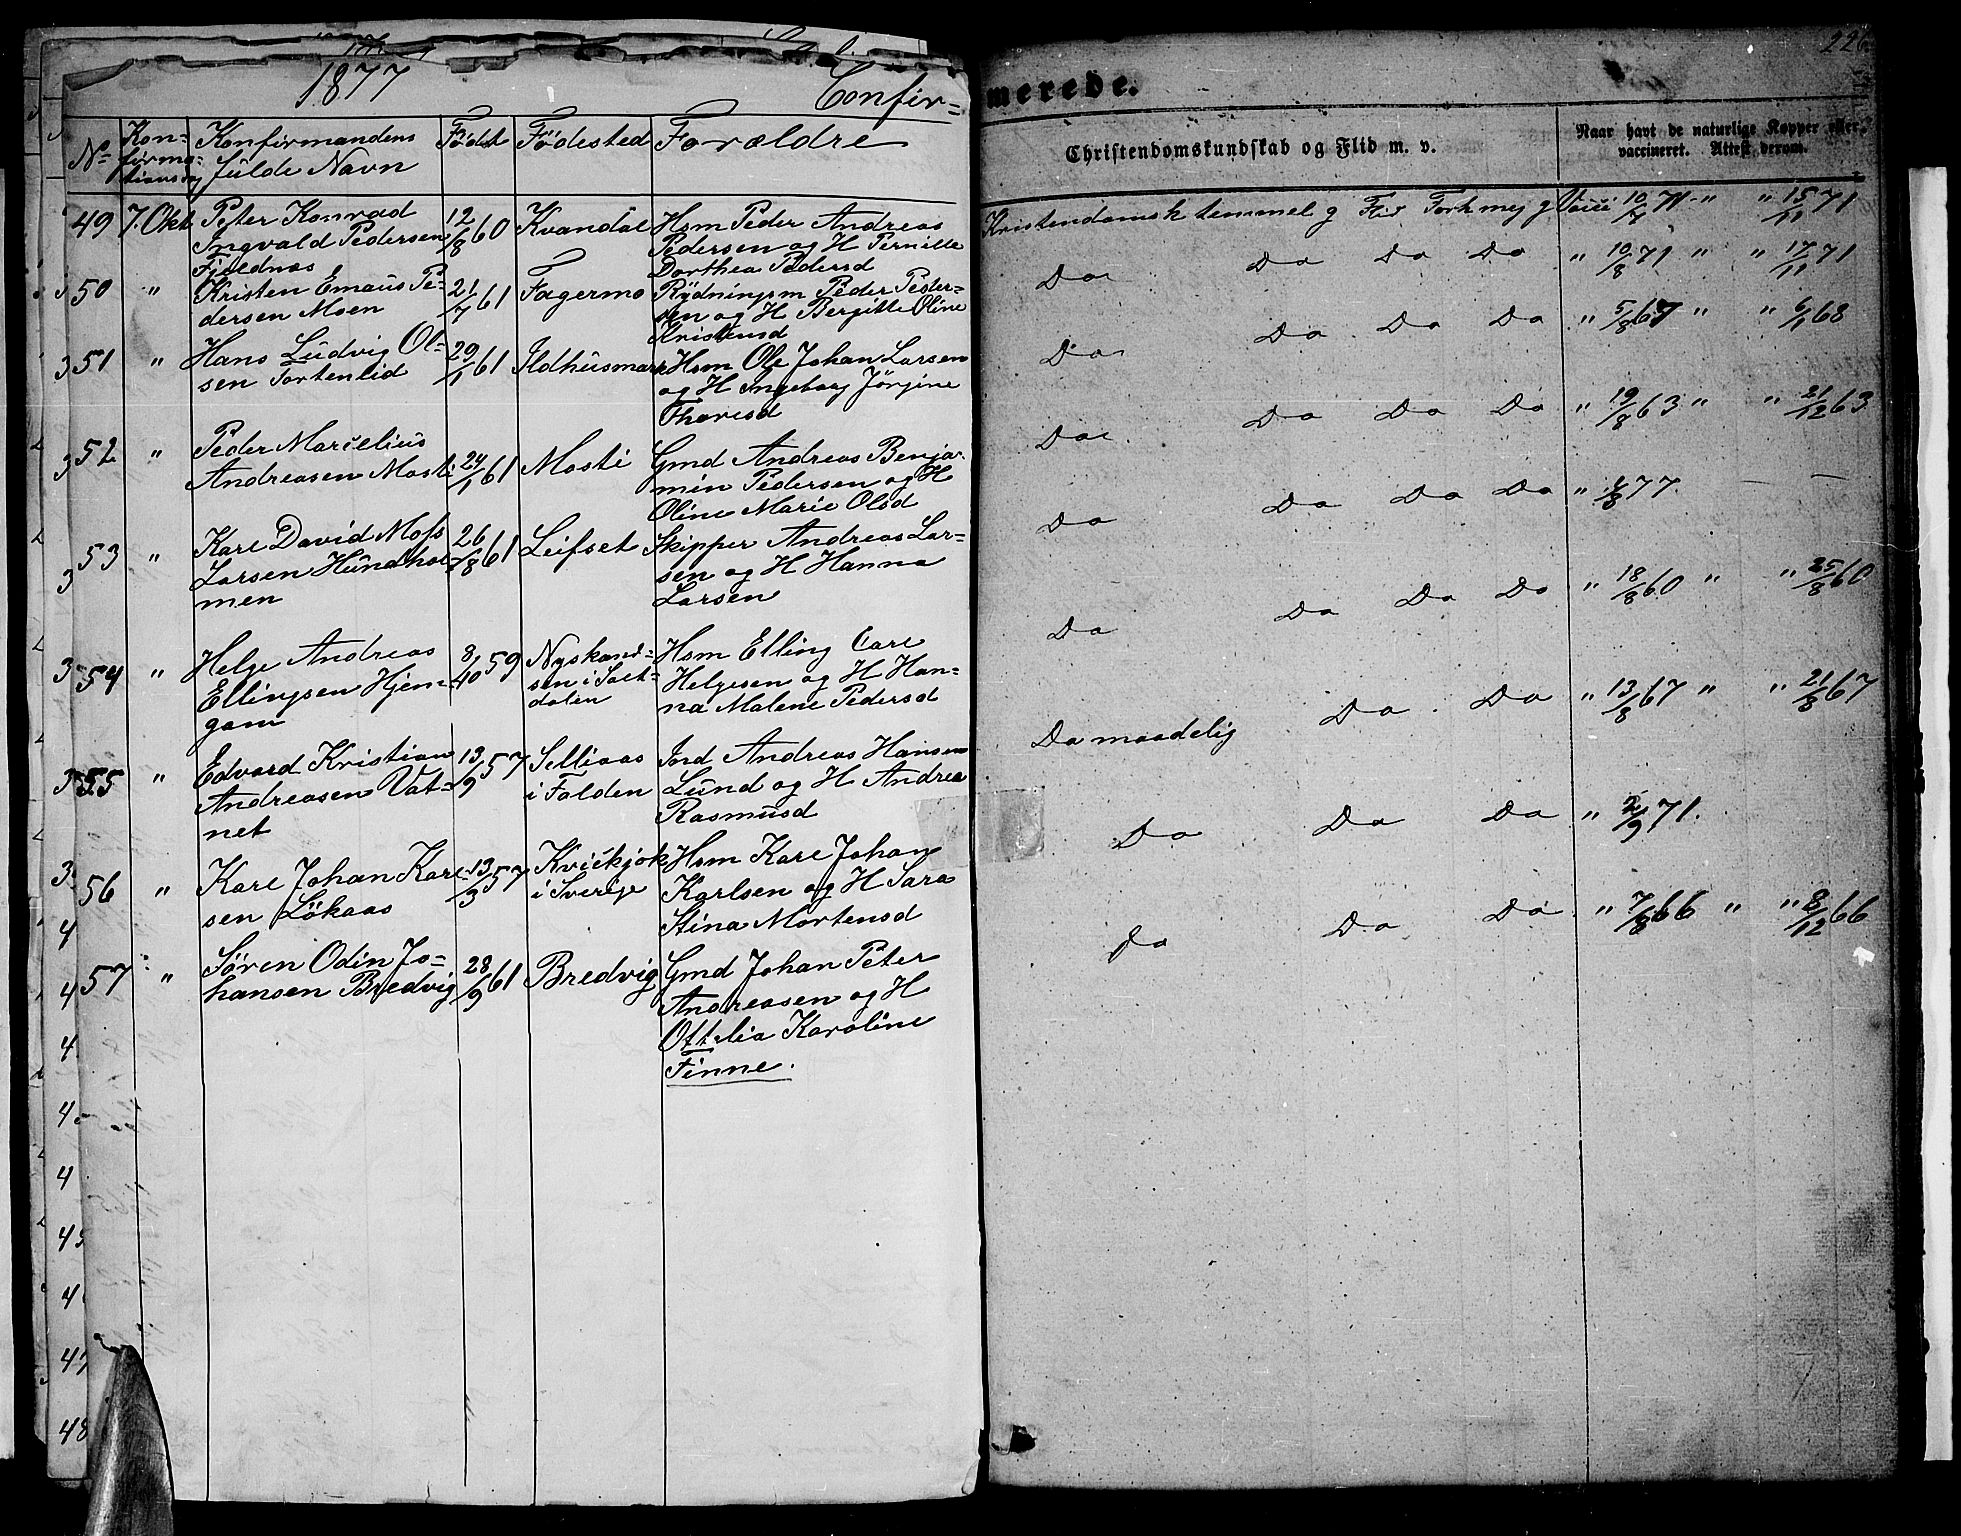 1877
Confir-
merede.
226
No
Kon-
firma-
tionsdag
Konfirmandens
fulde Navn
Født
Födested
Forældre
Christendomskundskab og Flid m. v.
Naar havt de naturlige Kopper eller
vaccineret. Attest derom.
49 7. Okt Peter Konrad
Ingvald Pedersen
Fjeldnæs
12/8 60 Kvandal
Hsm Peder Andreas
Pedersen og H Pernille
Dorthea Pedersd
Kristendomsk temmel g Flid Forh meg g Vacci 10/7 71 " " 15/11 71
50 " Kristen Emaus Pe-
dersen Moen
21/7 61 Fagermo
Rydningsm Peder Peder-
sen og H Bergitte Oline
Kristensd
Do Do Do Do " 10/8 71 " " 17/11 71
51 " Hans Ludvig Ol-
sen Tortenlid
29/1 61 Ildhusmark
Hsm Ole Johan Larsen
og H Ingeborg Jörgine
Thoresd
Do Do Do Do " 5/8 67 " " 6/1 68
52 " Peder Marcelius
Andreasen Mosti
24/1 61 Mosti
Gmd Andreas Benja-
min Pedersen og H
Oline Marie Olsd
Do Do Do Do " 19/8 63 " " 21/12 63
53 " Karl David Moss
Larsen Hundhol-
men
26/8 61 Leifset
Skipper Andreas Lar-
sen og H Hanna
Larsen
Do Do Do Do " 77. — —
54 " Helge Andreas
Ellingsen Hjem-
gam
8/10 59
sen i Salt-
dalen
Hsm Elling Carl
Helgesen og H Han-
na Malene Pedersd
Do Do Do Do " 18/8 60 " " 25/8 60
55 " Edvard Kristian
Andreasen Vat-
net
13/9 57 Selliaas
i Folden
Ind Andreas Hansen
Lund og H Andrea
Rasmusd
Do maadelig Do Do " 13/8 67 " " 21/8 67
56 " Karl Johan Karl-
sen Lökaas
13/3 57 Kvickjok
i Sverige
Hsm Karl Johan
Karlsen og H Sara
Stina Mortensd
Do Do Do " 2/9 71.
57 " Søren Odin Jo-
hansen Bredvig
28/9 61 Bredvig
Gmd Johan Peter
Andreasen og H
Ottelia Karoline
Finne.
Do Do Do " 7/8 66 " " 8/12 66
48